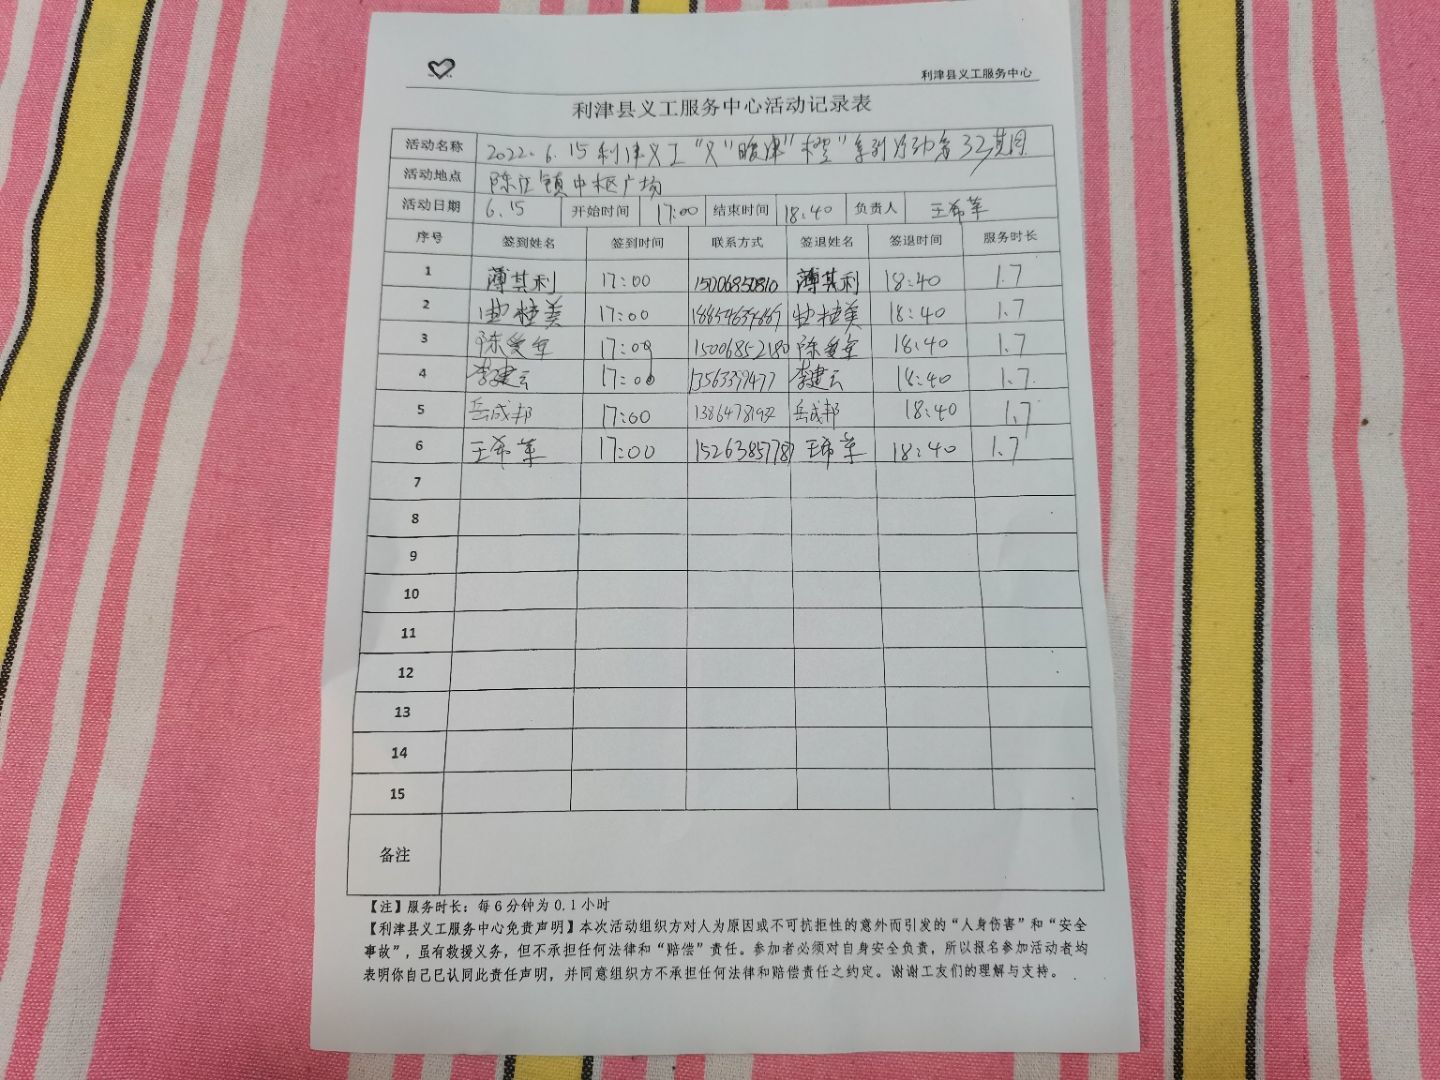 利津县义工服务中心
利津县义工服务中心活动记录表
活动名称 2022.6.15利津义工"义"暖津""系列活动第32期
活动地点 陈庄镇中枢广场
活动日期 6.15 开始时间 17:00 结束时间 18:40 负责人 王希苹
序号 签到姓名 签到时间 联系方式 签退姓名 签退时间 服务时长
1 薄其利 17:00 15006850810 薄其利 18:40 1.7
2 17:00 18:40 1.7
3 陈爱军 17:00 15006852180 陈爱军 18:40 1.7
4 李建云 17:00 18:40 1.7
5 岳成邦 17:00 岳成邦 18:40 1.7
6 王希苹 17:00 15263857787 王希苹 18:40 1.7
7
8
9
10
11
12
13
14
15
备注
【注】服务时长：每6分钟为0.1小时
【利津县义工服务中心免责声明】本次活动组织方对人为原因或不可抗拒性的意外而引发的“人身伤害”和“安全
事故”，虽有救援义务，但不承担任何法律和“赔偿”责任。参加者必须对自身安全负责，所以报名参加活动者均
表明你自己已认同此责任声明，并同意组织方不承担任何法律和赔偿责任之约定。谢谢工友们的理解与支持。